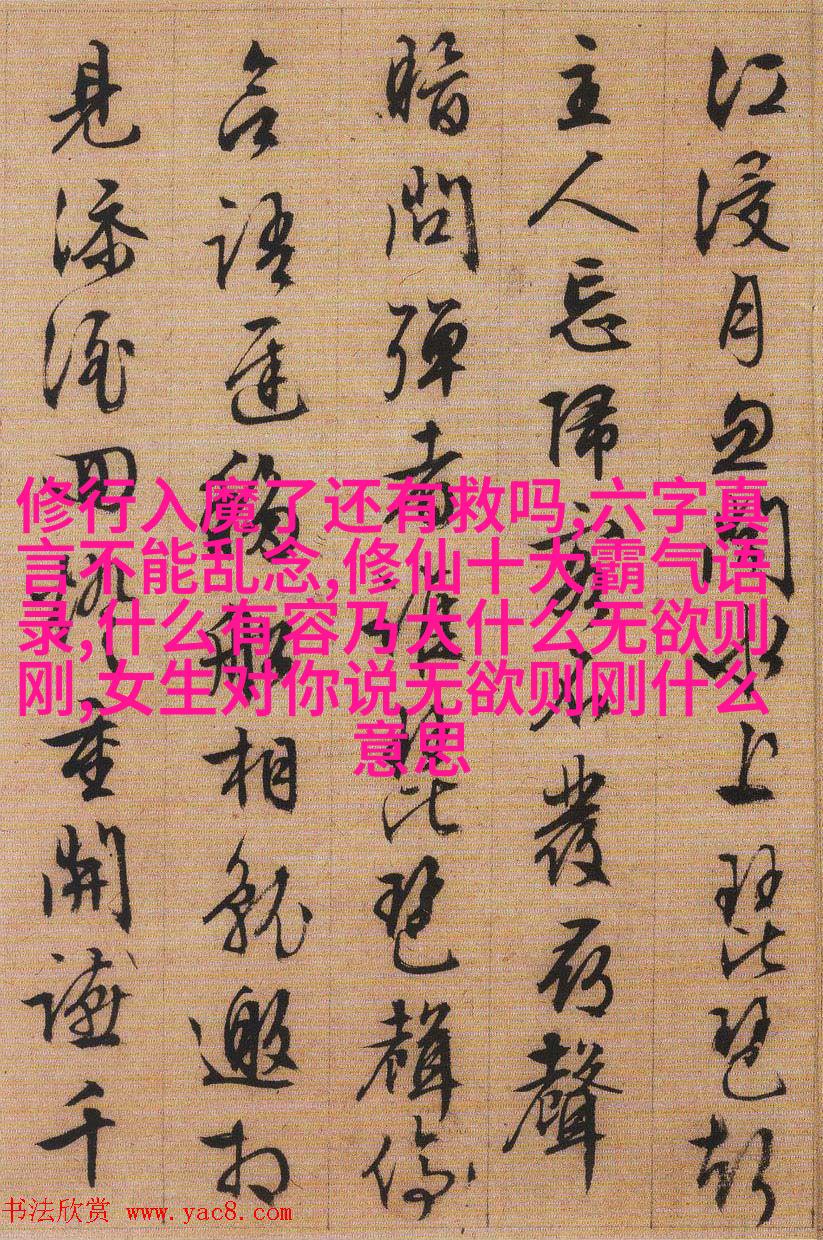 江浸月忽聞水上琵琶聲
主人忘歸客不發尋聲
暗問彈者誰琵琶聲停
欲語遲移船相就邀相
見添酒回燈重開讌千
修行入魔了还有救吗,六字真
言不能乱念,修仙十大霸气语
录,什么有容乃大什么无欲则
刚,女生对你说无欲则刚什么
意思
书法欣赏 www.yac8.com